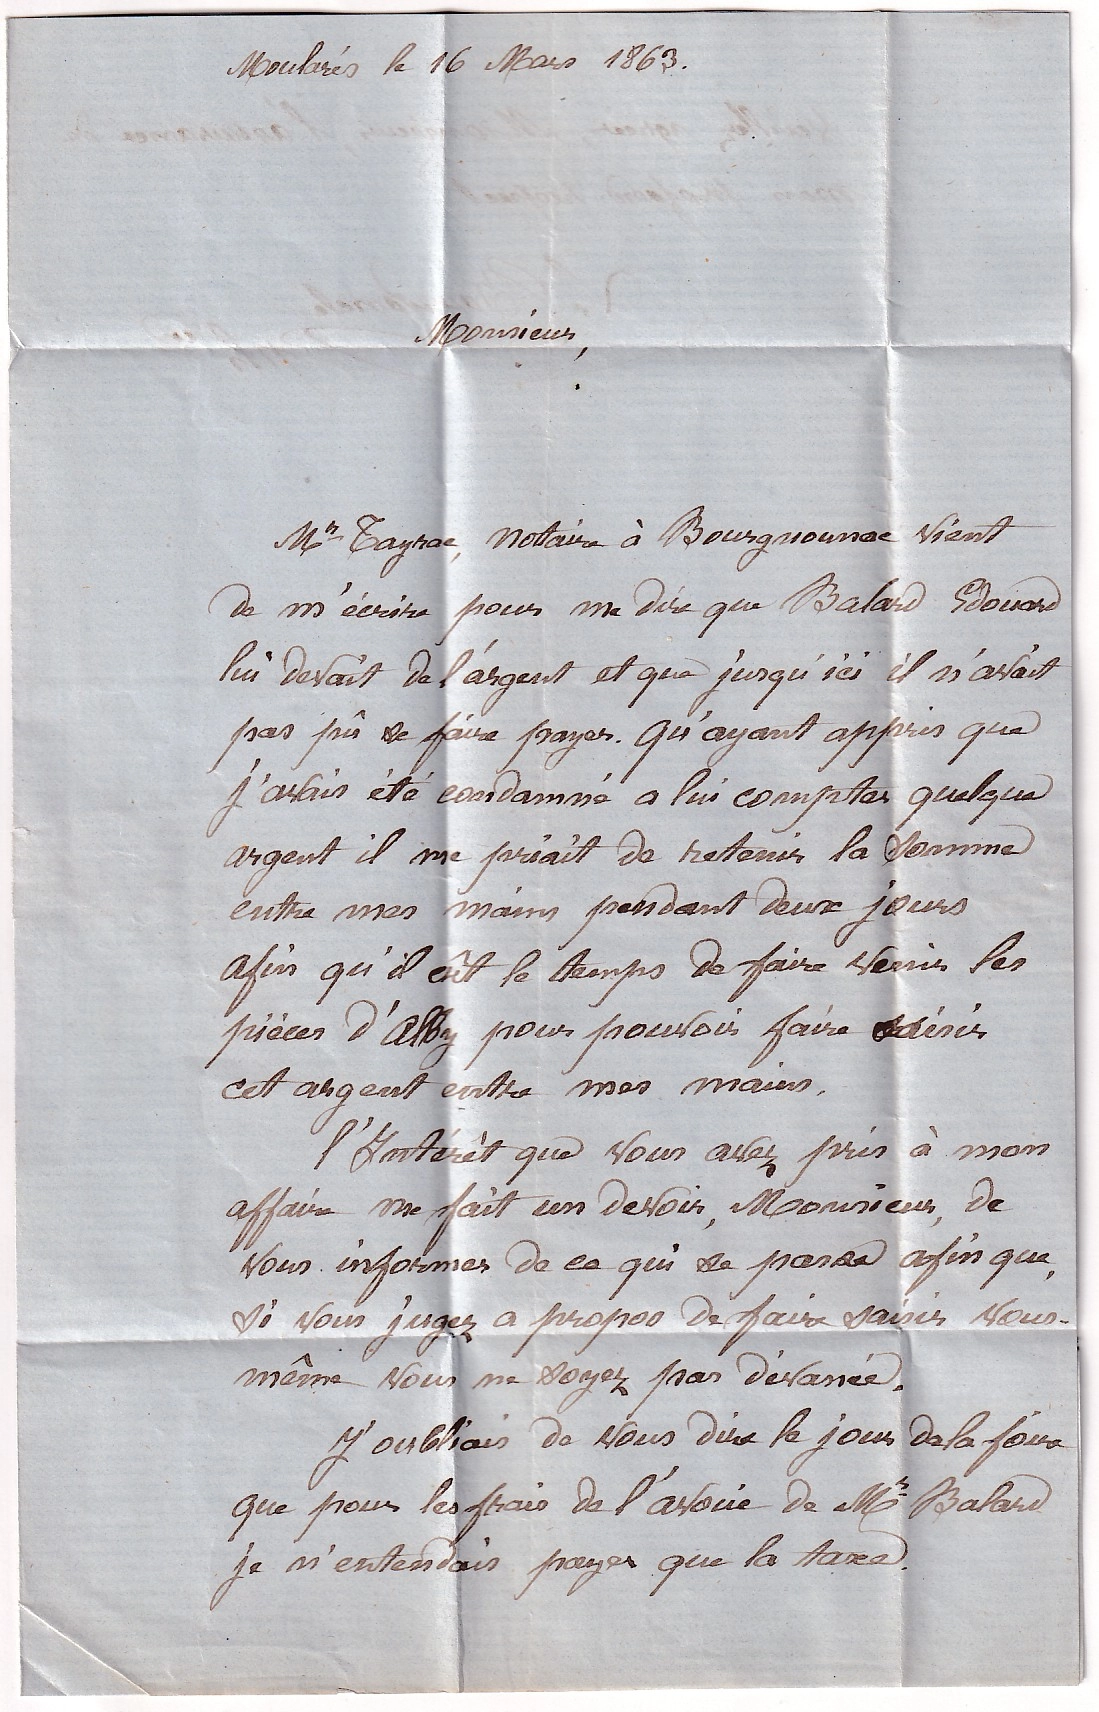 Moularés le 16 Mars 1863.
Monsieur,
Mr Tayrac, Notaire à Bourgnounac vient
de m'écrire pour me dire que Balard Edouard
lui devait de l'argent et que jusqu'ici il n'avait
pas pû se faire payer. Qu'ayant appris que
j'avais été condamné a lui compter quelque
argent il me priait de retenir la somme
entre mes mains pendant deux jours
afin qu'il eût le temps de faire venir les
pièces d'Alby pour pouvoir faire saisir
cet argent entre mes mains.
l'Intérêt que vous avez pris à mon
affaire me fait un devoir, Monsieur, de
vous informer de ce qui se passe afin que,
si vous jugez a propos de faire saisir vous-
même vous ne soyez pas dévancé.
J'oubliais de vous dire le jour de la foire
que pour les frais de l'avoué de Mr Balard
je n'entendais payer que la taxe.